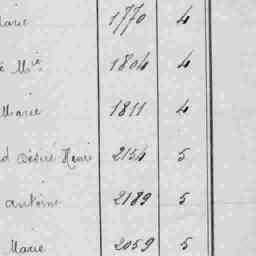 Marie 1770 4
é Mie 1804 4
Marie 1811 4
d Désiré Henri 2154 5
antoine 2189 5
Marie 2059 5